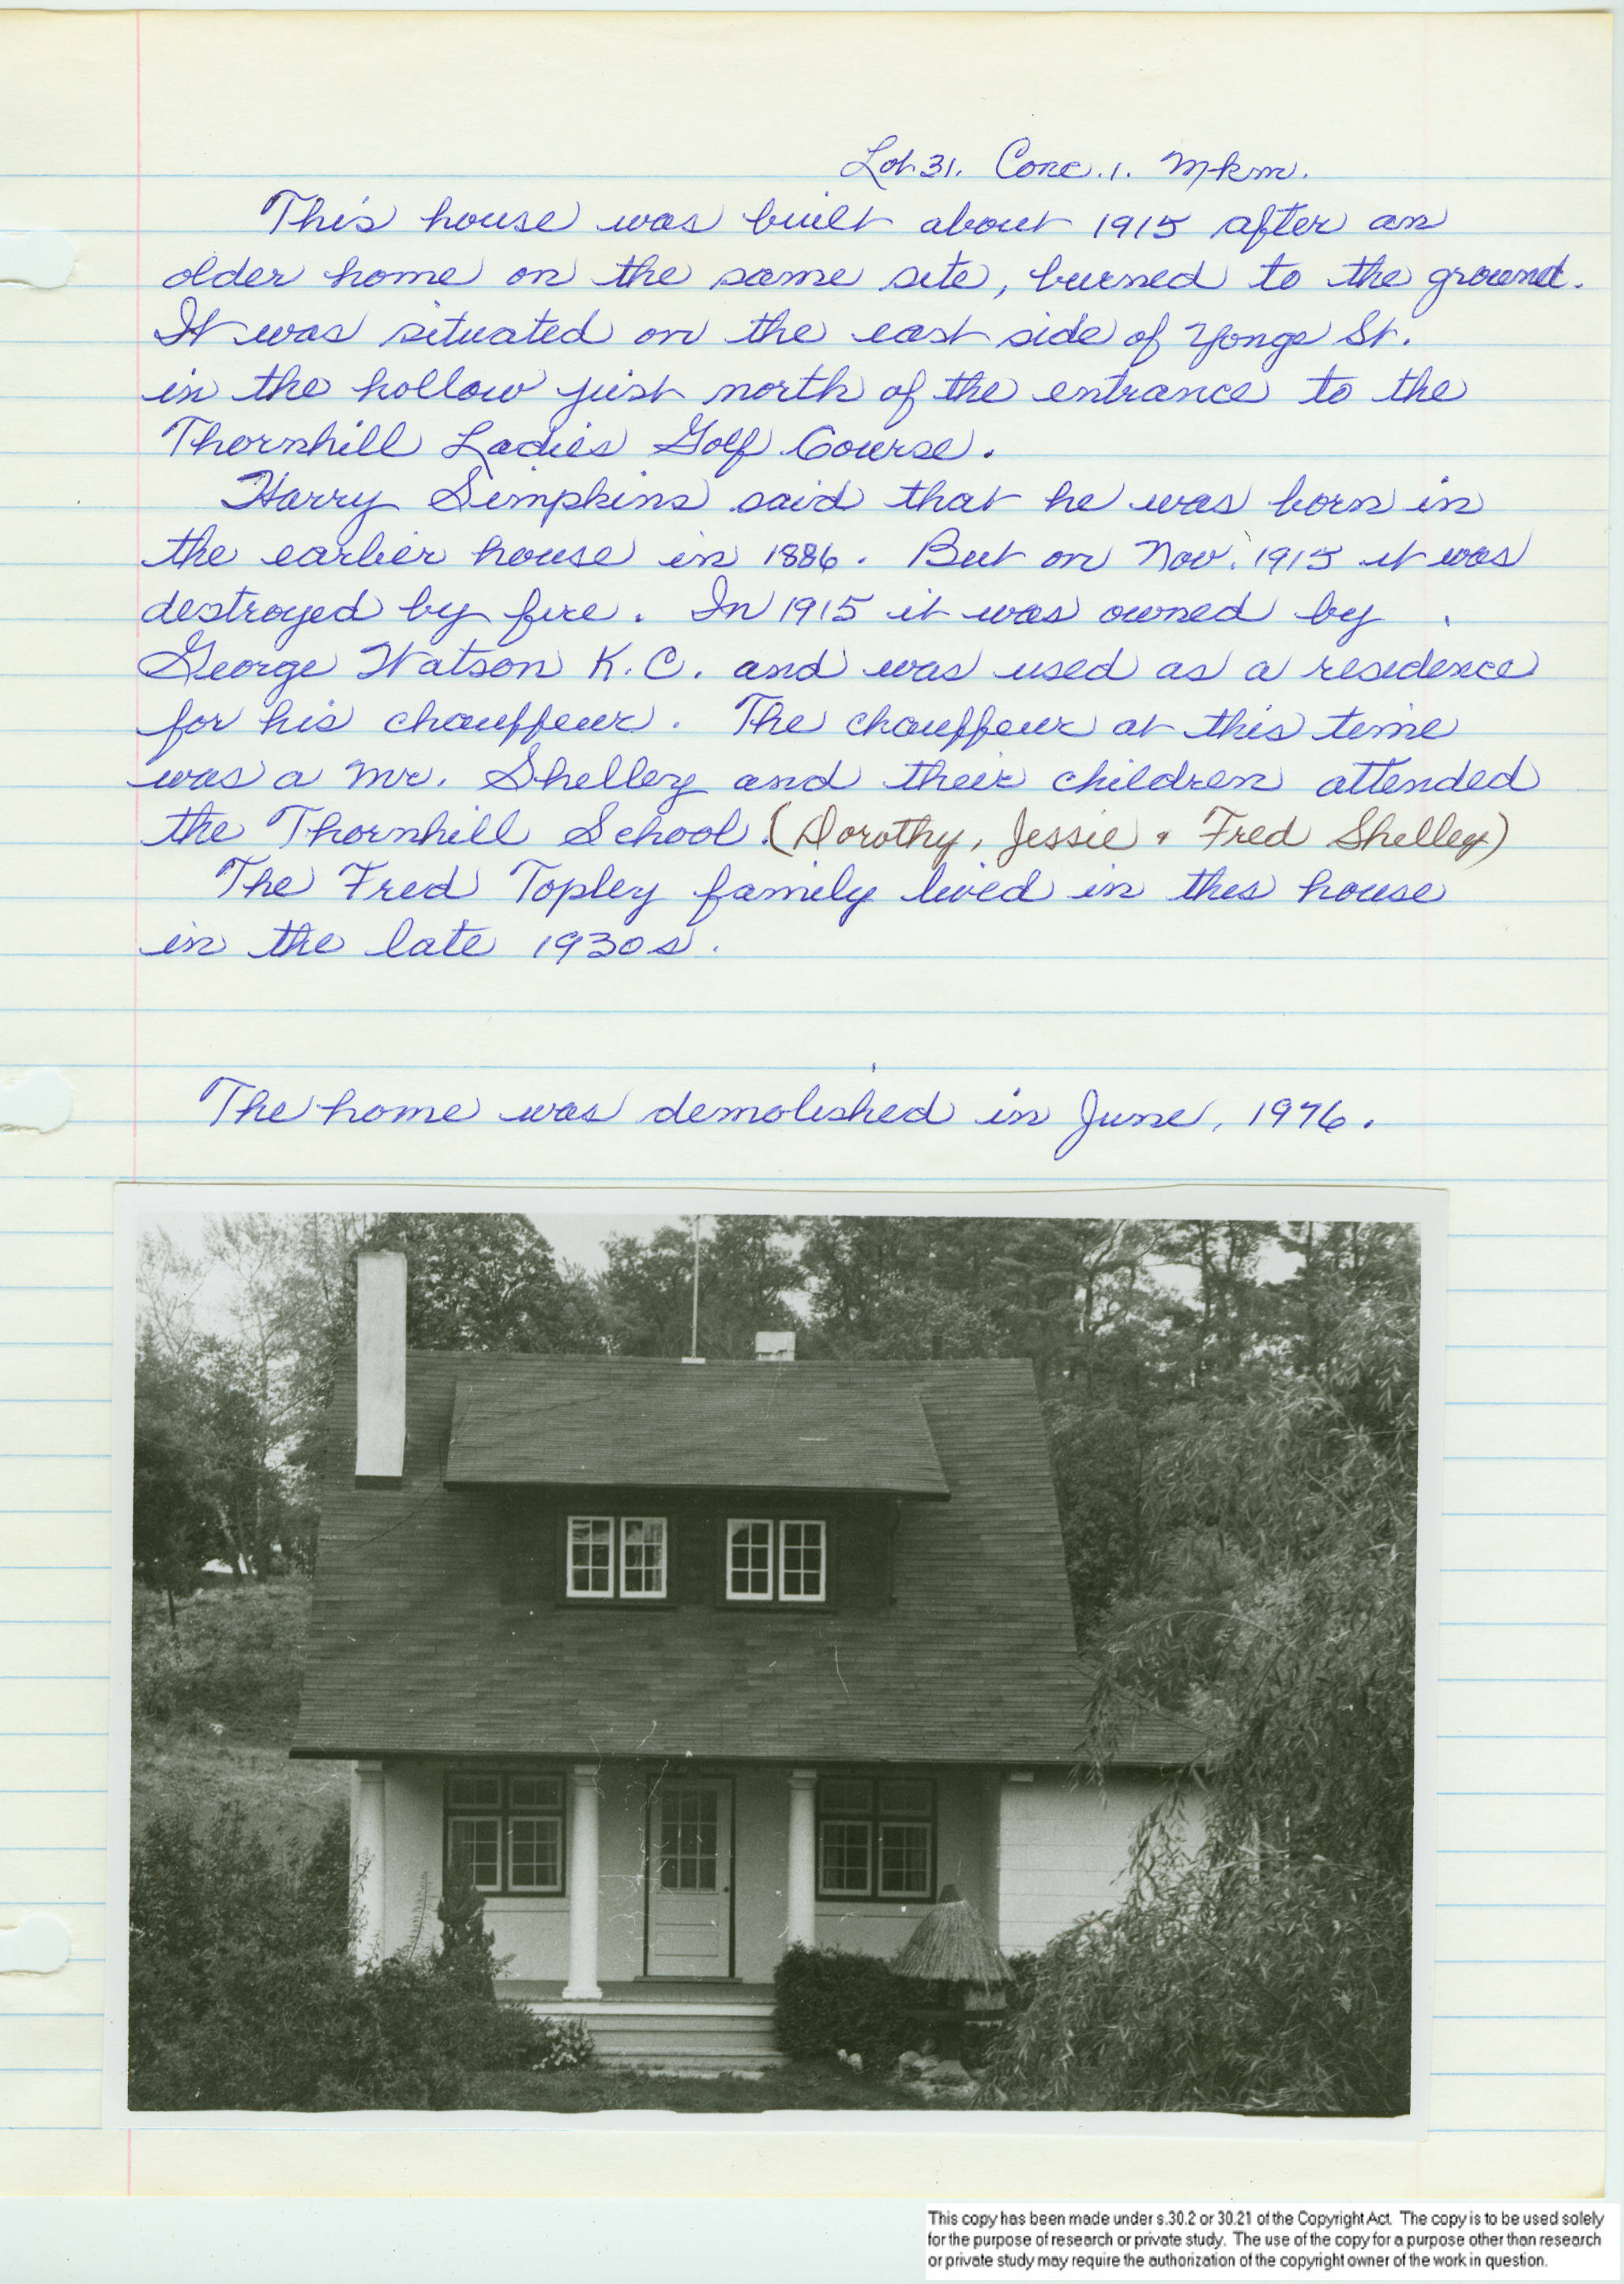 Lot 31. Conc. 1. Mkm.
This house was built about 1915 after an
older home on the same site, burned to the ground.
It was situated on the east side of Yonge St.
in the hollow just north of the entrance to the
Thornhill Ladies Golf Course.
Harry Simpkins said that he was born in
the earlier house in 1886. But on Nov. 1915 it was
destroyed by fire. In 1915 it was owned by
George Watson K.C. and was used as a residence
for his chauffeur. The chauffeur at this time
was a Mr. Shelley and their children attended
the Thornhill School. (Dorothy, Jessie & Fred Shelley)
The Fred Topley family lived in this house
in the late 1930s.
The home was demolished in June, 1976.
This copy has been made under s.30.2 or 30.21 of the Copyright Act. The copy is to be used solely
for the purpose of research or private study. The use of the copy for a purpose other than research
or private study may require the authorization of the copyright owner of the work in question.